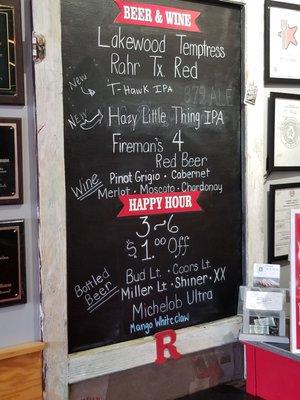 BEER & WINE
Lakewood Temptress
Rahr Tx Red
New
T-Hawk IPA
New
Hazy Little Thing IPA
Fireman's 4
Red Beer
Wine
Pinot Grigio · Cabernet
Merlot · Moscato · Chardonay
HAPPY HOUR
3~6
$1.00 Off
Bottled Beer
Bud Lt. · Coors Lt.
Miller Lt · Shiner · XX
Michelob Ultra
Mango White Claw
R